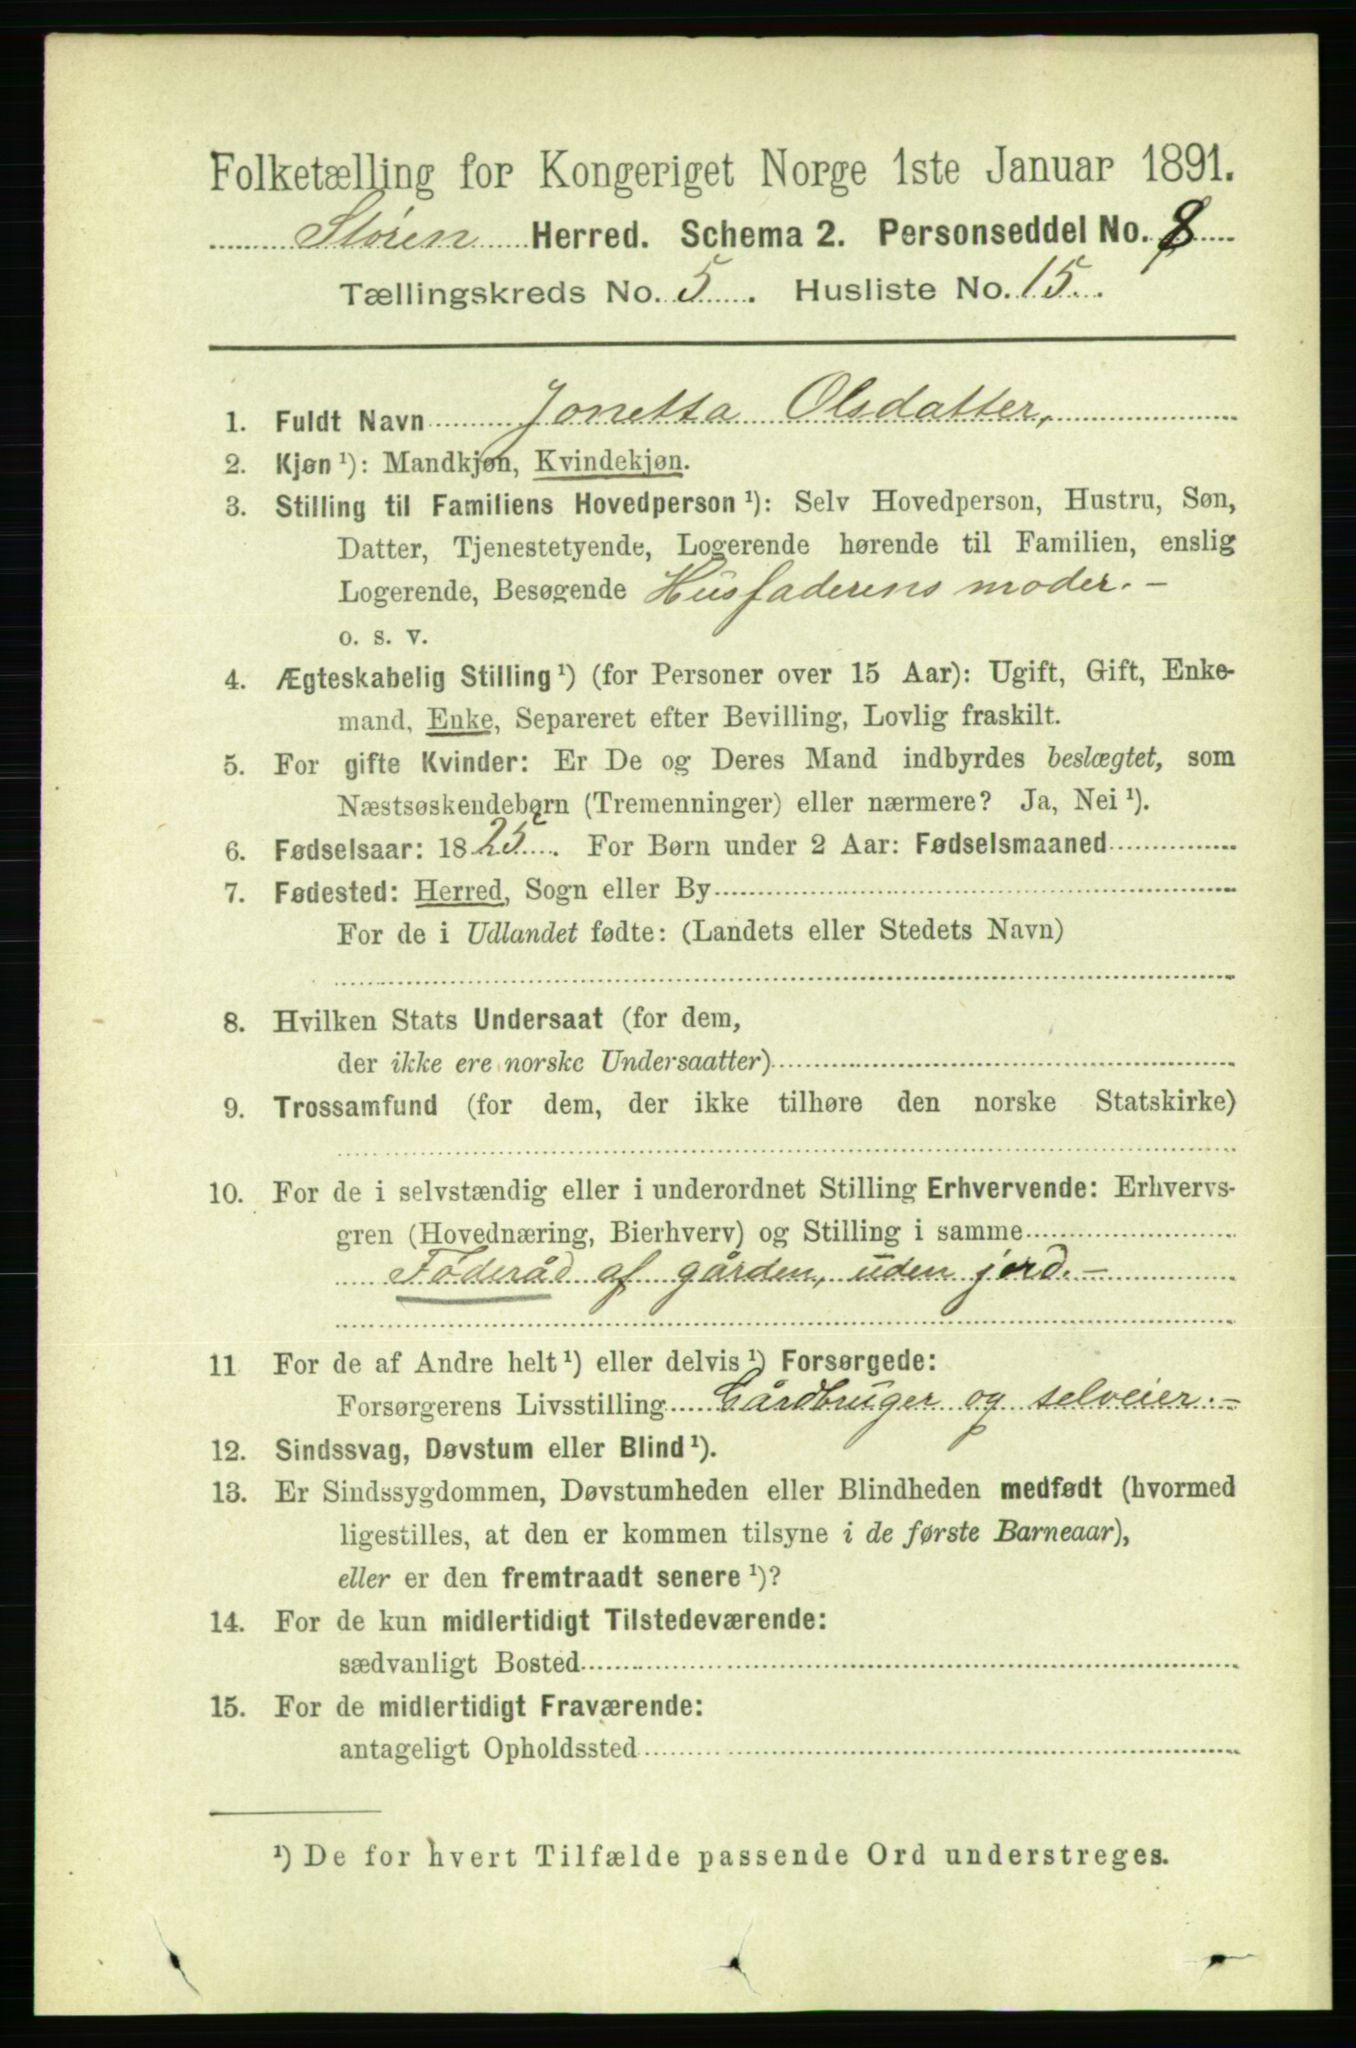 Folketælling for Kongeriget Norge 1ste Januar 1891.
Støren Herred. Schema 2. Personseddel No. 8
Tællingskreds No. 5. Husliste No. 15.
1. Fuldt Navn Jonetta Olsdatter,
2. Kjøn ¹): Mandkjøn, Kvindekjøn.
3. Stilling til Familiens Hovedperson ¹): Selv Hovedperson, Hustru, Søn,
Datter, Tjenestetyende, Logerende hørende til Familien, enslig
Logerende, Besøgende Husfaderens moder. -
o. s. v.
4. Ægteskabelig Stilling ¹) (for Personer over 15 Aar): Ugift, Gift, Enke-
mand, Enke, Separeret efter Bevilling, Lovlig fraskilt.
5. For gifte Kvinder: Er De og Deres Mand indbyrdes beslægtet, som
Næstsøskendebørn (Tremenninger) eller nærmere? Ja, Nei ¹).
6. Fødselsaar: 1825. For Børn under 2 Aar: Fødselsmaaned
7. Fødested: Herred, Sogn eller By
For de i Udlandet fødte: (Landets eller Stedets Navn)
8. Hvilken Stats Undersaat (for dem,
der ikke ere norske Undersaatter)
9. Trossamfund (for dem, der ikke tilhøre den norske Statskirke)
10. For de i selvstændig eller i underordnet Stilling Erhvervende: Erhvervs-
gren (Hovednæring, Bierhverv) og Stilling i samme
Føderåd af gården, uden jord. -
11 For de af Andre helt ¹) eller delvis ¹) Forsørgede:
Forsørgerens Livsstilling Gårdbruger og selveier. -
12. Sindssvag, Døvstum eller Blind ¹).
13. Er Sindssygdommen, Døvstumheden eller Blindheden medfødt (hvormed
ligestilles, at den er kommen tilsyne i de første Barneaar),
eller er den fremtraadt senere ¹)?
14. For de kun midlertidigt Tilstedeværende:
sædvanligt Bosted
15. For de midlertidigt Fraværende:
antageligt Opholdssted
¹) De for hvert Tilfælde passende Ord understreges.